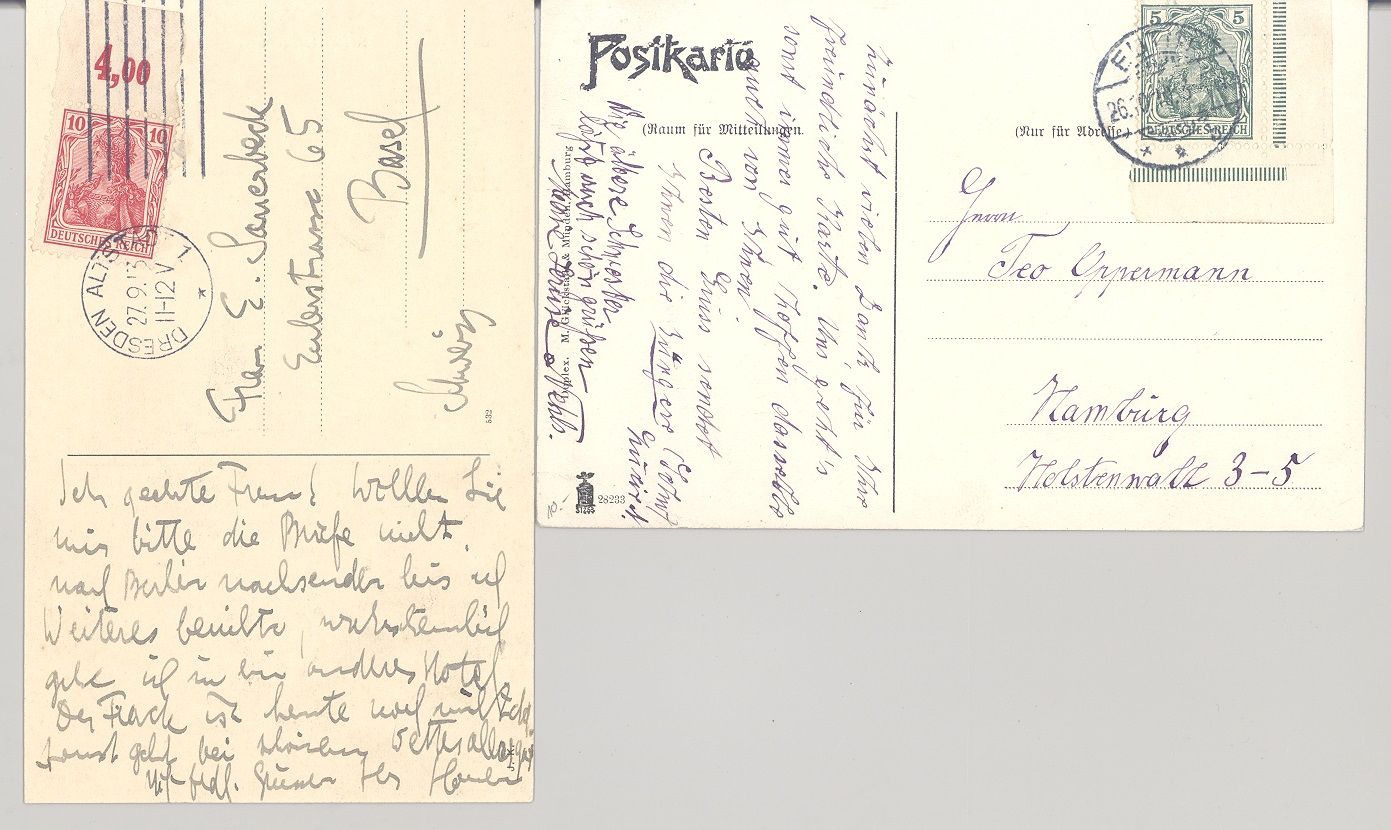 4,00
10 10
DEUTSCHES REICH
DRESDEN ALTST. 1
27.9.13
11-12 V
Frau E. Sauerbeck
Eulerstrasse 65
Basel
Schweiz
532
Sehr geehrte Frau! Wollen Sie
mir bitte die Briefe nicht
nach Berlin nachsenden bis ich
Weiteres berichte, wahrscheinlich
gehe ich in ein anderes Hotel.
Der Frack ist heute noch nicht
sonst geht bei schönem Wetter alles
Mit frdl. Grüssen Ihr
Postkarte
(Raum für Mitteilungen.
(Nur für Adresse
5 5
DEUTSCHES REICH
26.10.
Herrn
Teo Oppermann
Hamburg
Holstenwall 3-5
Zunächst vielen Dank für Ihre
freundliche Karte. Uns geht's
sonst immer gut, hoffen dasselbe
auch von Ihnen.
Besten Gruss sendet
Ihnen die jüngere
Die ältere Schwester
lässt auch schön grüßen
M. Glückstadt & Münden, Hamburg
28233